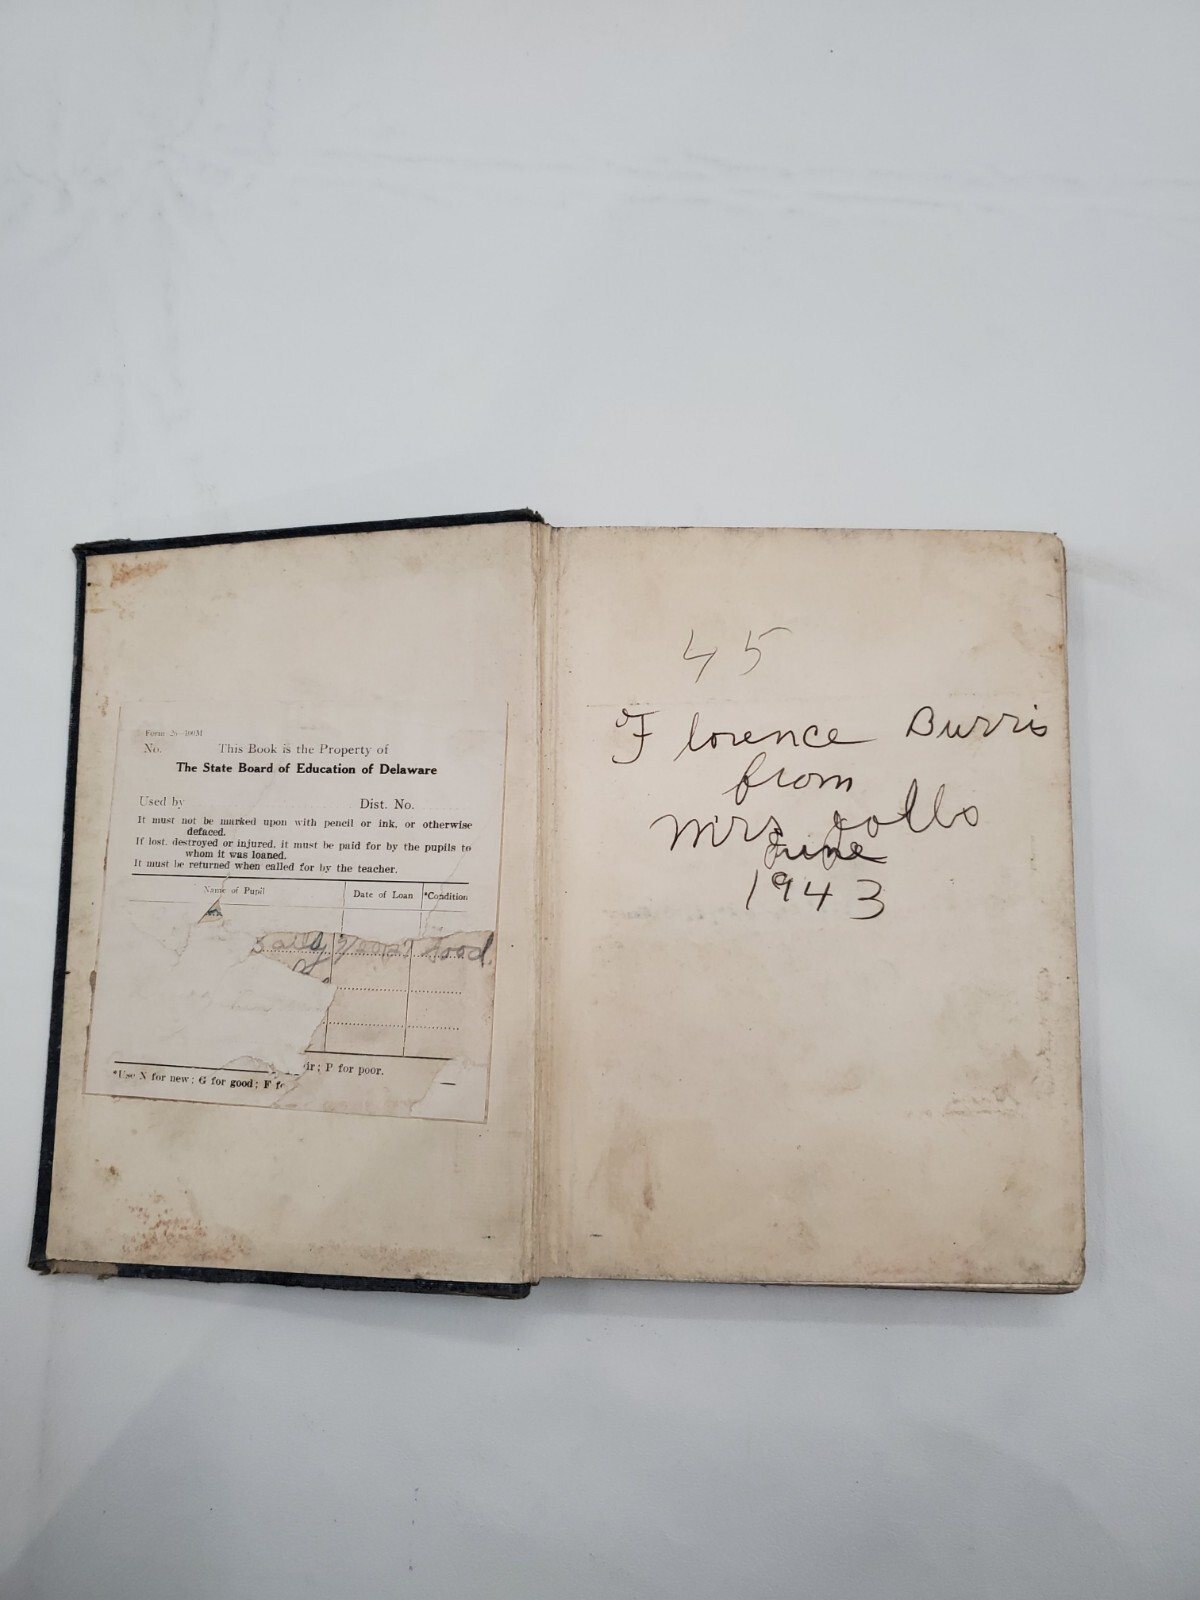 Form 26—100M
No. This Book is the Property of
The State Board of Education of Delaware
Used by Dist. No.
It must not be marked upon with pencil or ink, or otherwise
defaced.
If lost, destroyed or injured, it must be paid for by the pupils to
whom it was loaned.
It must be returned when called for by the teacher.
Name of Pupil Date of Loan *Condition
Good.
*Use N for new; G for good; F f ir; P for poor.
45
Florence Burris
from
Mrs
June
1943